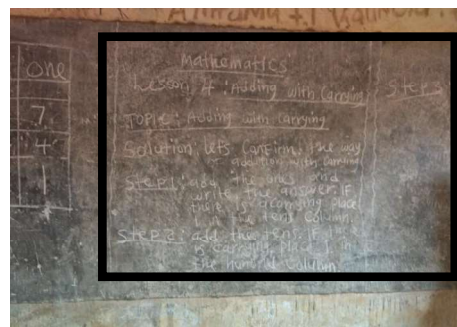 one
7
4
1
Mathematics
Lesson 4: Adding with Carrying
TOPIC: Adding with Carrying
Solution: lets Confirm the way
addition with carrying
Step 1: add the ones and
write the answer. IF
there is carrying place
in the tens Column.
Step 2: add the tens. IF there
is carrying place 1 in
the hundred Column
Steps